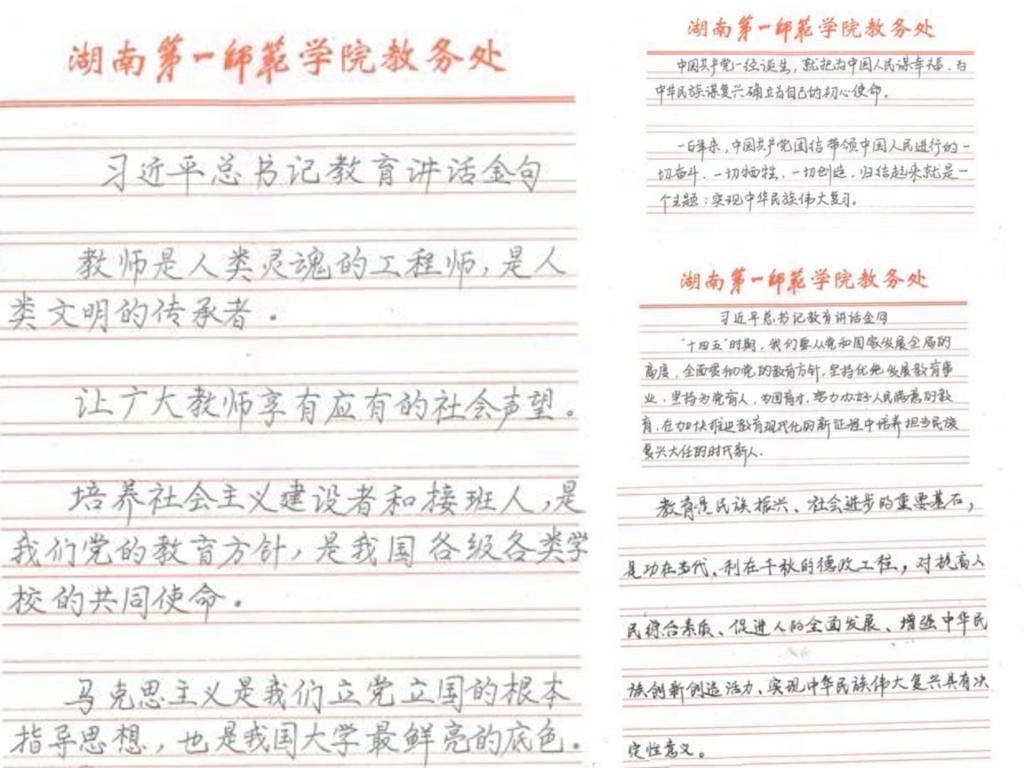 湖南第一师范学院教务处
习近平总书记教育讲话金句
教师是人类灵魂的工程师,是人
类文明的传承者。
让广大教师享有应有的社会声望。
培养社会主义建设者和接班人,是
我们党的教育方针,是我国各级各类学
校的共同使命。
马克思主义是我们立党立国的根本
指导思想,也是我国大学最鲜亮的底色。
湖南第一师范学院教务处
中国共产党一经诞生,就把为中国人民谋幸福、为
中华民族谋复兴确立为自己的初心使命。
一百年来,中国共产党团结带领中国人民进行的一
切奋斗、一切牺牲、一切创造,归结起来就是一
个主题:实现中华民族伟大复习。
湖南第一师范学院教务处
习近平总书记教育讲话金句
“十四五”时期,我们要从党和国家发展全局的
高度,全面贯彻党的教育方针,坚持优先发展教育事
业,坚持为党育人、为国育才,努力办好人民满意的教
育,在加快推进教育现代化的新征程中培养担当民族
复兴大任的时代新人.
教育是民族振兴、社会进步的重要基石,
是功在当代、利在千秋的德政工程,对提高人
民综合素质、促进人的全面发展、增强中华民
族创新创造活力、实现中华民族伟大复兴具有决
定性意义。